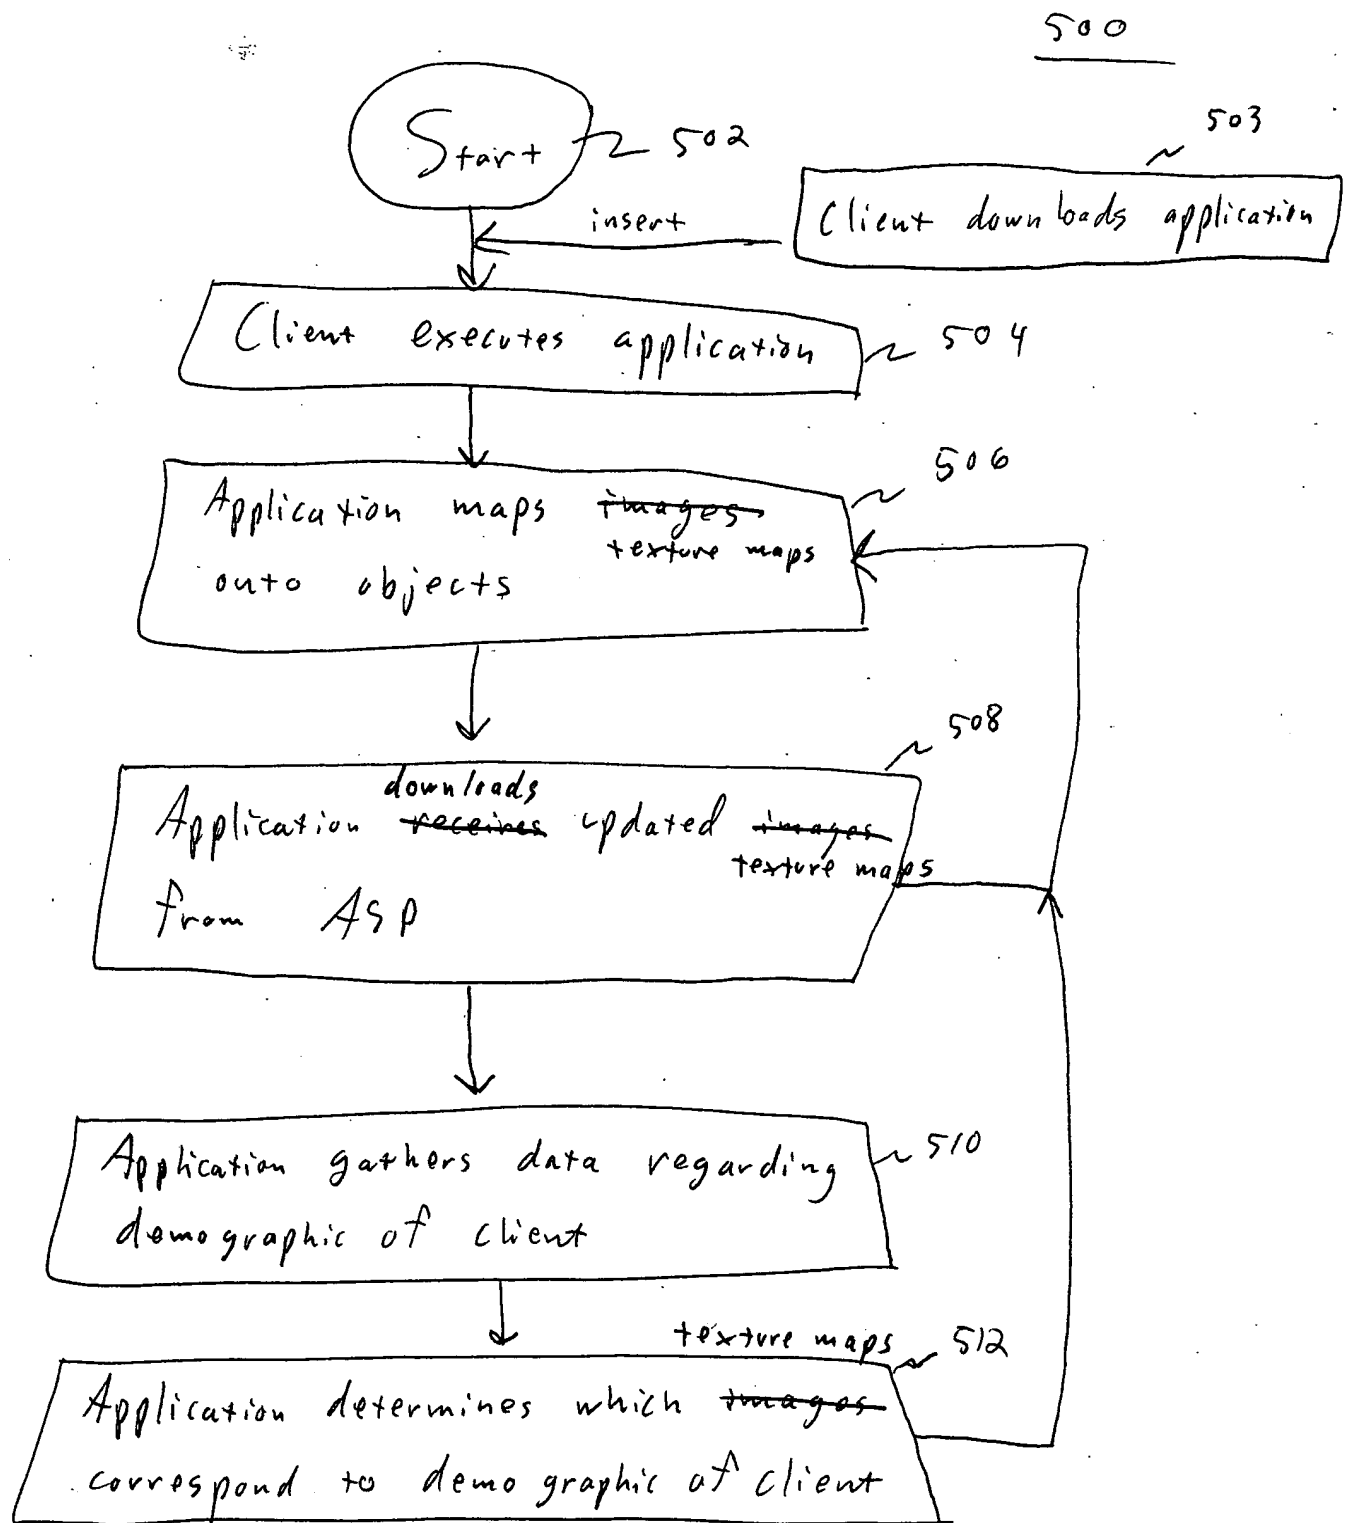 500
Start
502
503
insert
Client downloads application
Client executes application
504
506
Application maps images
texture maps
onto objects
508
downloads
Application receives updated images
texture maps
from ASP
Application gathers data regarding
510
demographic of client
texture maps
512
Application determines which images
correspond to demographic of client